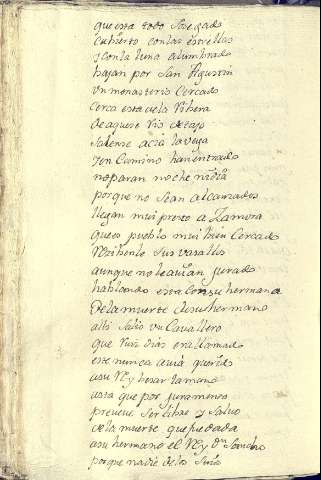 que esta todo sosegado
cubierto con las estrellas
y con la luna alumbrado
bajan por San Agustin
vn monasterio Cercado
cerca esta de la Ribera
de aquese Rio de tajo
salense acia la vega
y en Camino han entrado
no paran noche ni dia
porque no sean alcanzados
llegan mui presto a Zamora
que es pueblo mui bien Cercado
Reziuenlo sus vasallos
aunque no le auian jurado
hablando esta con su hermana
de la muerte de su hermano
alli salio vn Cavallero
que Rui dias era llamado
este nunca auia querido
a su Rey besar la mano
asta que por juramento
prueue ser libre y saluo
de la muerte que fue dada
a su hermano el Rey Dn Sancho
porque nadie de los suios